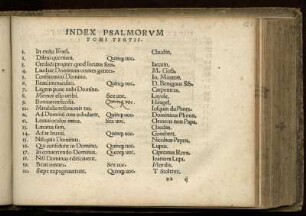 INDEX PSALMORVM
TOMI TERTII.
1. In exitu Israel. Claudin.
2. Dilexi quoniam. Quinq; voc.
3. Credidi propter quod locutus sum. Iacotin.
4. Laudate Dominum omnes gentes. M. Gasc.
5. Confitemini Domino. Io. Mouton.
6. Beati immaculati. Quinq; voc. D. Benignus
7. Legem pone mihi Domine. Carpentras.
8. Memor esto verbi. Sex voc. Lupus.
9. Bonitatem fecisti. Quinq; voc.
10. Mirabilia testimonia tua. Iosquin de Pratis.
11. Ad Dominum cum tribularer. Quinq; voc. Dominicus Phinot.
12. Levavi oculos meos. Sex voc. Clemens non Papa.
13. Laetatus sum. Claudin.
14. Ad te levavi. Quinq; voc. Gombert.
15. Nisi quia Dominus. Nicolaus Payen.
16. Qui confidunt in Domino. Quinq; voc. Lupi.
17. In convertendo Dominus. Quinq; voc. Ciprianus Rore.
18. Nisi Dominus edificaverit. Ioannes Lupi.
19. Beati omnes. Sex voc.
20. Sepe expugnaverunt. Quinq; voc. T. Stoltzer.